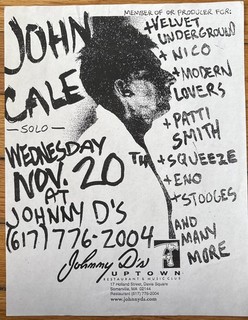 MEMBER OF OR PRODUCER FOR:
JOHN
CALE
—SOLO—
WEDNESDAY
NOV. 20TH
AT
JOHNNY D'S
(617) 776-2004
+VELVET
UNDERGROUND
+ NICO
+MODERN
LOVERS
+PATTI
SMITH
+SQUEEZE
+ENO
+STOOGES
AND
MANY
MORE
Johnny D's
UPTOWN
RESTAURANT & MUSIC CLUB
17 Holland Street, Davis Square
Somerville, MA 02144
Restaurant (617) 776-2004
www.johnnyds.com